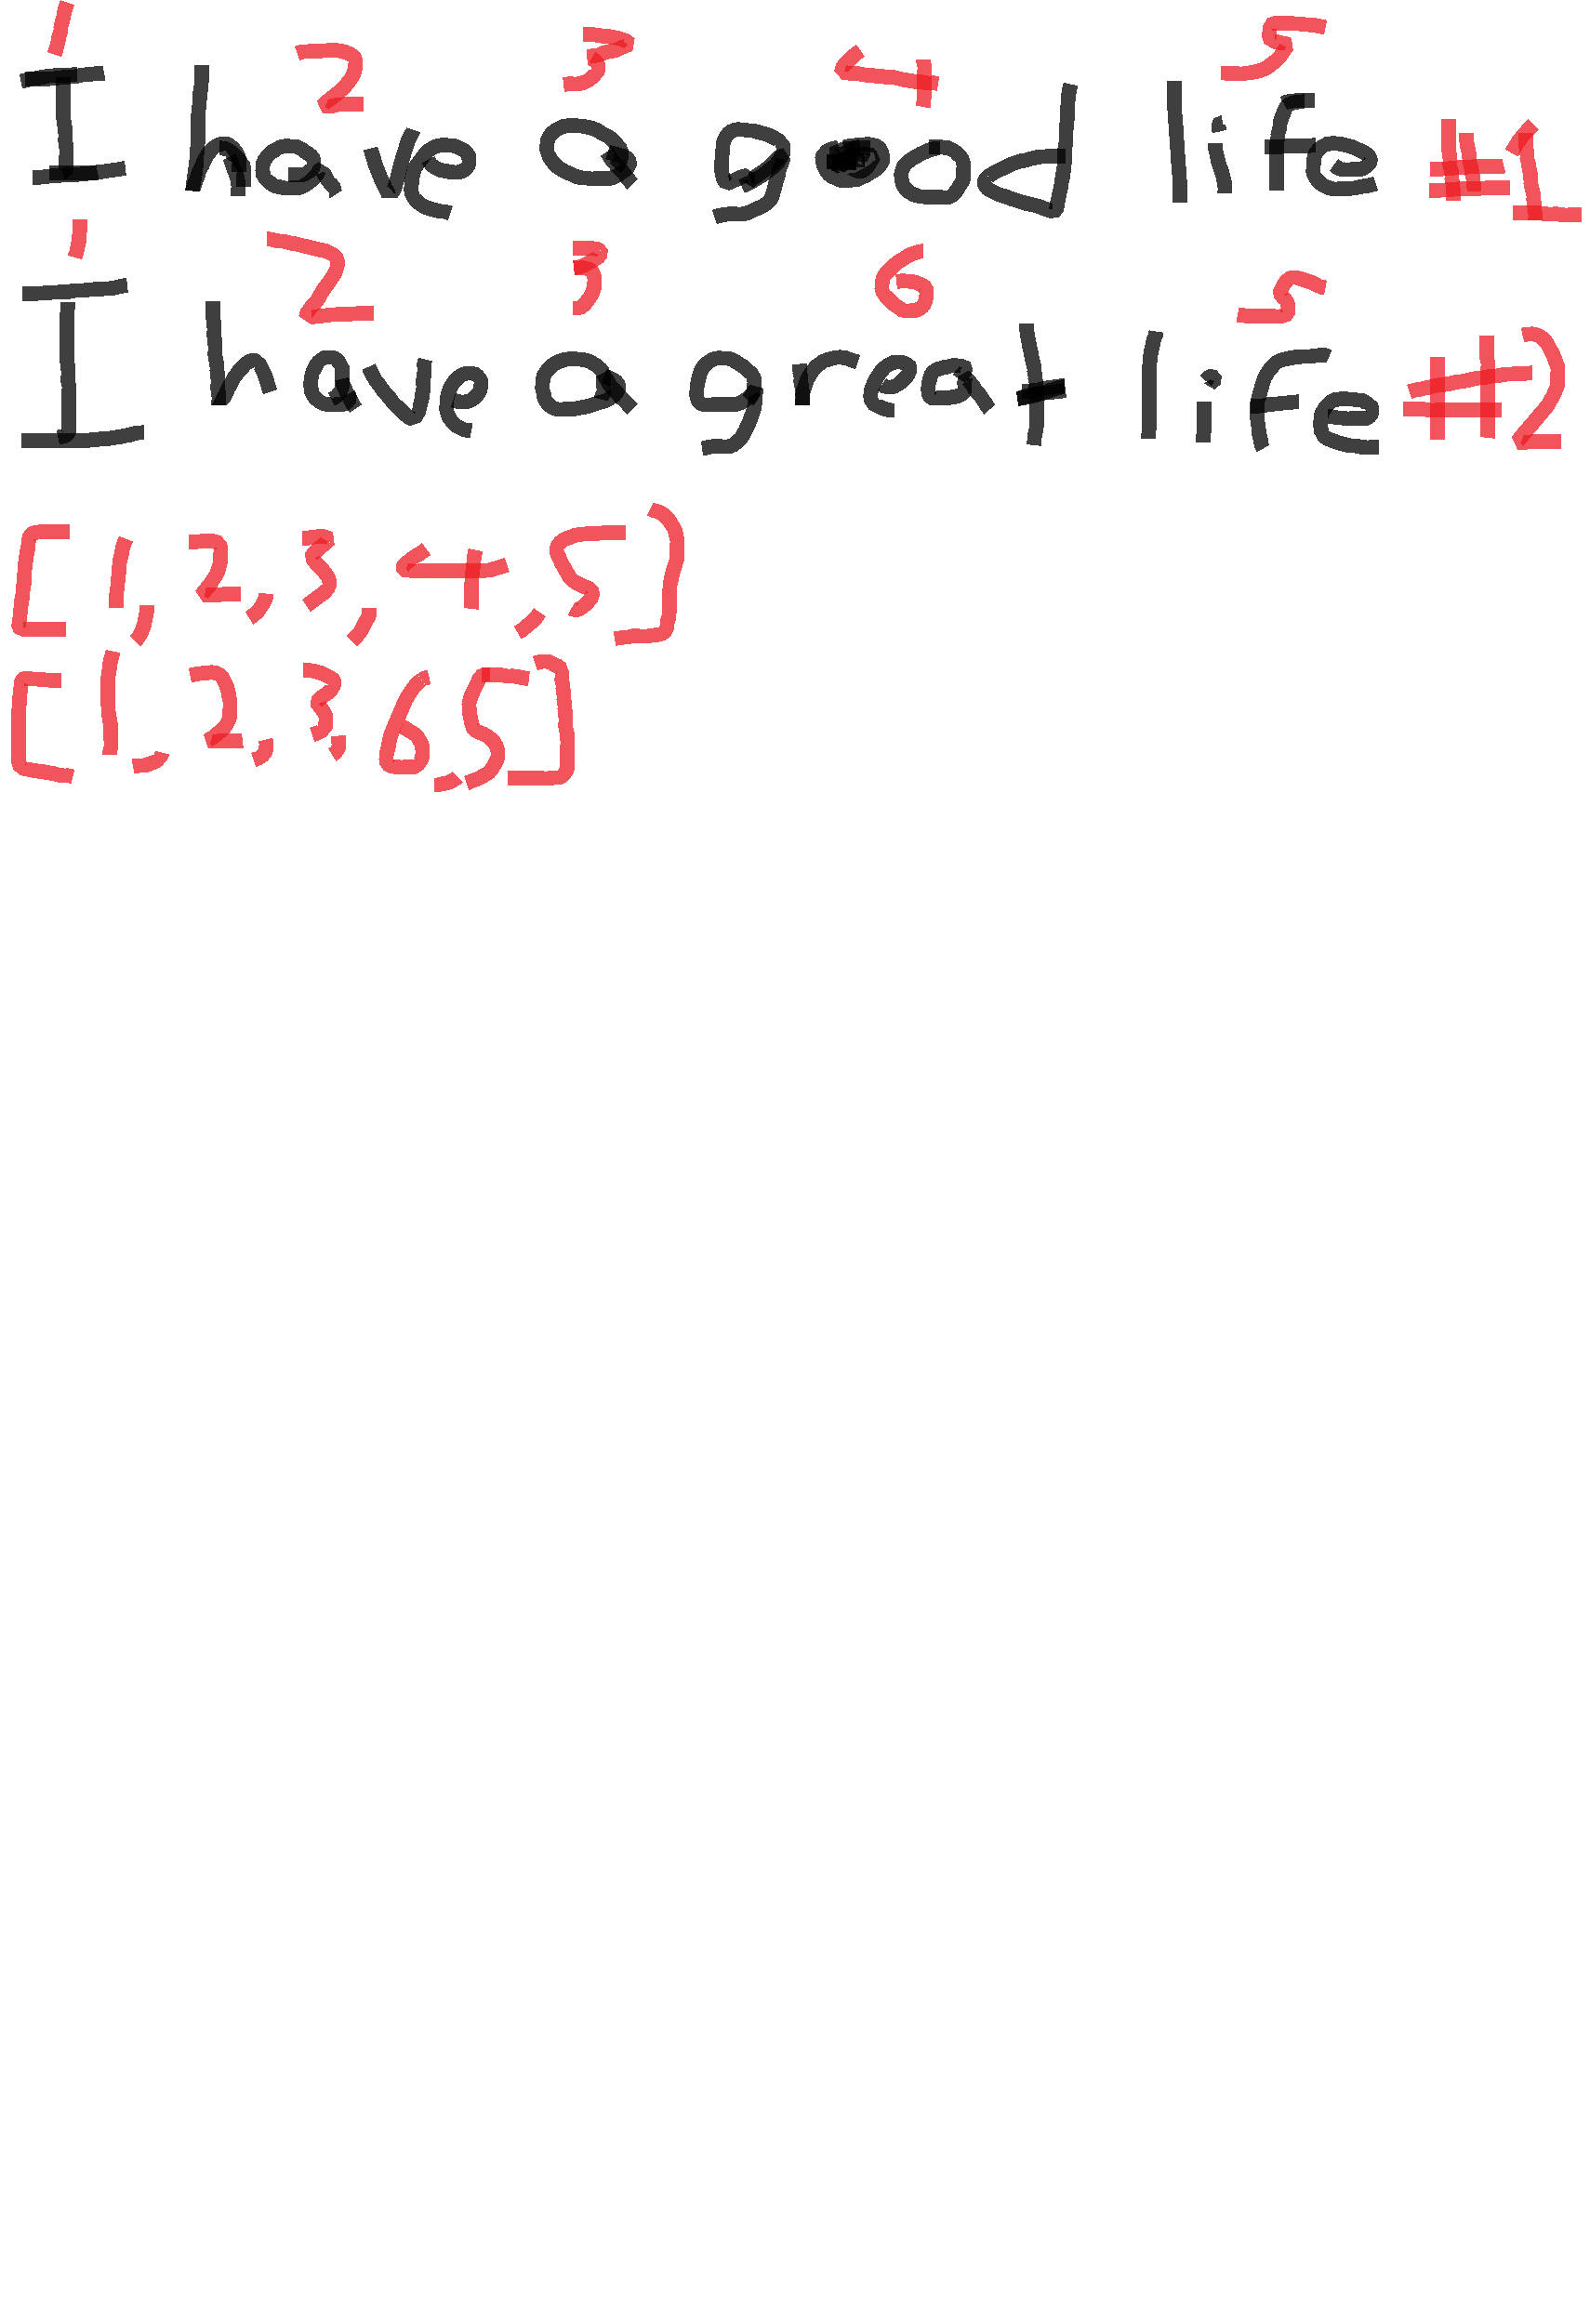 1 2 3 4 5
I have a good life #1
1 2 3 6 5
I have a great life #2
[1, 2, 3, 4, 5]
[1, 2, 3, 6, 5]